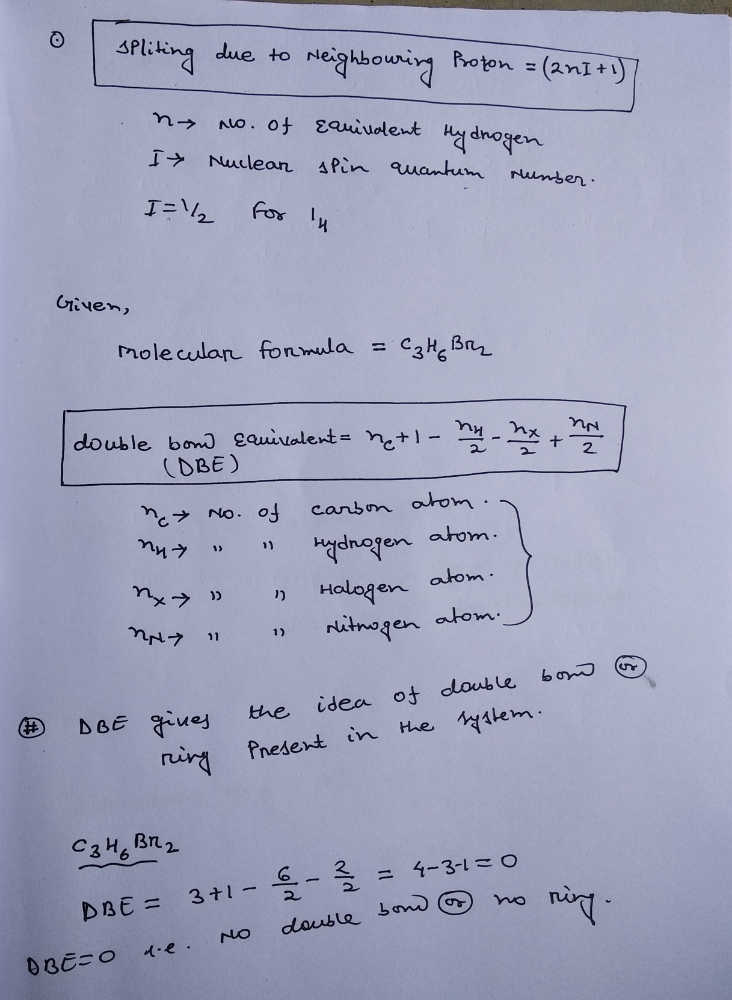 ⊙ spliting due to Neighbouring Proton = (2nI+1)
n → No. of Equivalent Hydrogen
I → Nuclear spin quantum Number.
I = 1/2 For ¹H
Given,
molecular formula = C₃H₆Br₂
double bond Equivalent = n_C + 1 - n_H/2 - n_X/2 + n_N/2
(DBE)
n_C → No. of carbon atom.
n_H → " " Hydrogen atom.
n_X → " " Halogen atom.
n_N → " " Nitrogen atom.
# DBE gives the idea of double bond or
ring Present in the system.
C₃H₆Br₂
DBE = 3+1 - 6/2 - 2/2 = 4-3-1 = 0
DBE=0 i.e. No double bond or no ring.